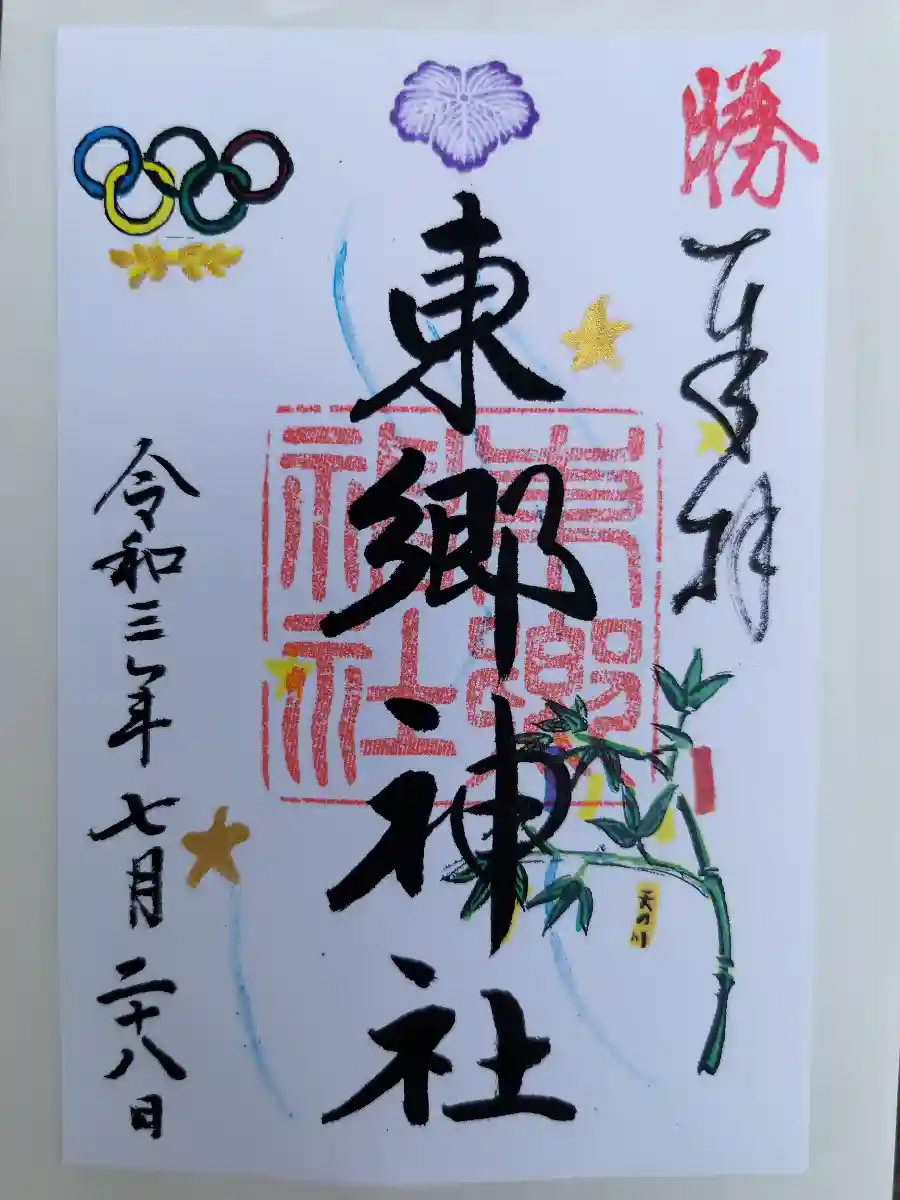 勝
奉拝
東郷神社
天の川
令和三年七月二十八日